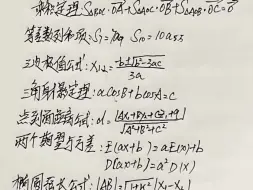 乘积定理: S△BOC·OA+S△AOC·OB+S△AOB·OC=0
等差数列中项: S₇=7a₄ S₁₀=10a₅.₅
三次极值公式: x₁,₂=(-b±√(b²-3ac))/3a
三角射影定理: acosB+bcosA=c
点到面距离公式: d=|Ax₁+By₁+Cz₁+1|/√(A²+B²+C²)
两个期望与方差: E(ax+b)=aE(x)+b
D(ax+b)=a²D(x)
椭圆弦长公式: |AB|=√(1+k²)|x₁-x₂|